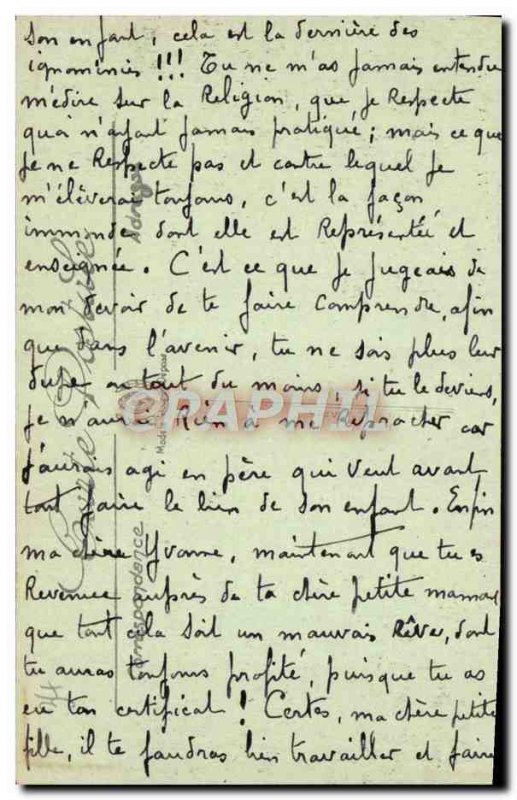 son enfant, cela est la dernière des
ignominies !!! Tu ne m'as jamais entendu
médire sur la Religion, que je Respecte
quoi n'ayant jamais pratiqué ; mais ce que
je ne Respecte pas et contre lequel je
m'élèverai toujours, c'est la façon
immonde dont elle est Représentée et
enseignée. C'est ce que je jugeais de
mon devoir de te faire comprendre, afin
que dans l'avenir, tu ne sois plus leur
dupe ou tout du moins, si tu le deviens,
je n'aurai Rien à me Reprocher car
j'aurais agi en père qui veut avant
tout faire le bien de son enfant. Enfin
ma chère Yvonne, maintenant que tu es
Revenue auprès de ta chère petite maman
que tout cela soit un mauvais Rêve, dont
tu auras toujours profité, puisque tu as
eu ton certificat ! Certes, ma chère petite
fille, il te faudras bien travailler et faire
Carte Postale
Correspondance
Adresse
CPAPHIL